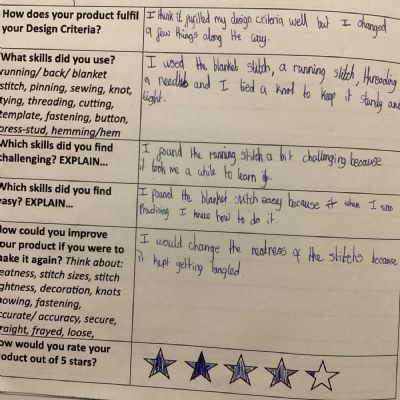 How does your product fulfil
your Design Criteria?
I think it fulfilled my design criteria well but I changed
a few things along the way.
What skills did you use?
running/ back/ blanket
stitch, pinning, sewing, knot,
tying, threading, cutting,
template, fastening, button,
press-stud, hemming/hem
I used the blanket stitch, a running stitch, threading
a needle and I tied a knot to keep it sturdy and
tight.
Which skills did you find
challenging? EXPLAIN...
I found the running stitch a bit challenging because
it took me a while to learn it.
Which skills did you find
easy? EXPLAIN...
I found the blanket stitch easy because it when I was
Practising I knew how to do it.
How could you improve
your product if you were to
make it again? Think about:
neatness, stitch sizes, stitch
tightness, decoration, knots
showing, fastening,
accurate/ accuracy, secure,
straight, frayed, loose,
I would change the neatness of the stitchs because
it kept getting tangled
How would you rate your
product out of 5 stars?